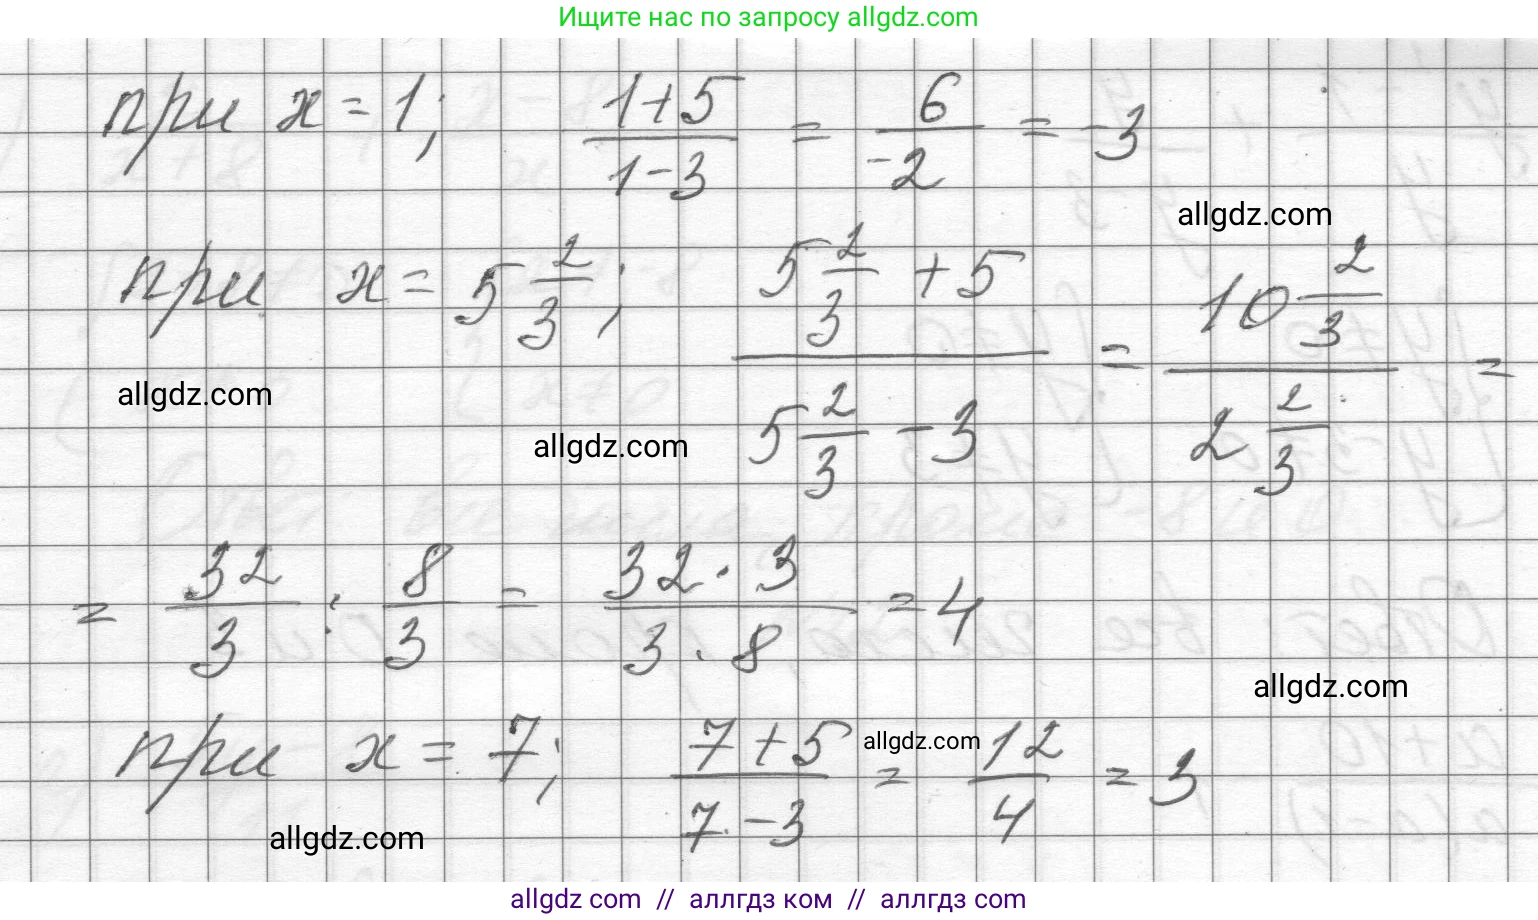 Ищите нас по запросу allgdz.com
при x = 1; (1+5)/(1-3) = 6/(-2) = -3
allgdz.com
при x = 5 2/3; (5 2/3 + 5)/(5 2/3 - 3) = (10 2/3)/(2 2/3) =
allgdz.com
allgdz.com
= 32/3 : 8/3 = (32 · 3)/(3 · 8) = 4
allgdz.com
при x = 7; (7+5)/(7-3) = 12/4 = 3
allgdz.com
allgdz.com
allgdz com // аллгдз ком // аллгдз com